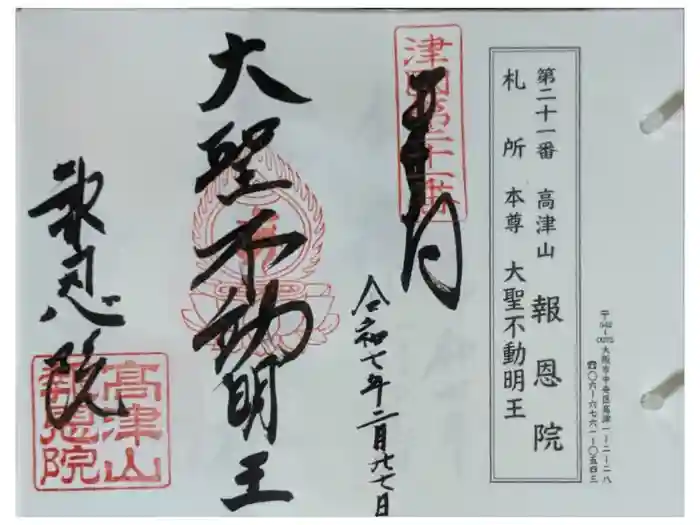 〒542-0072 大阪市中央区高津一-二-二八
☎〇六-六七六一-〇五四三
第二十一番 高津山 報恩院
札所 本尊 大聖不動明王
津國第二十一番
奉拝
令和七年二月廿七日
大聖不動明王
報恩院
高津山
報恩院